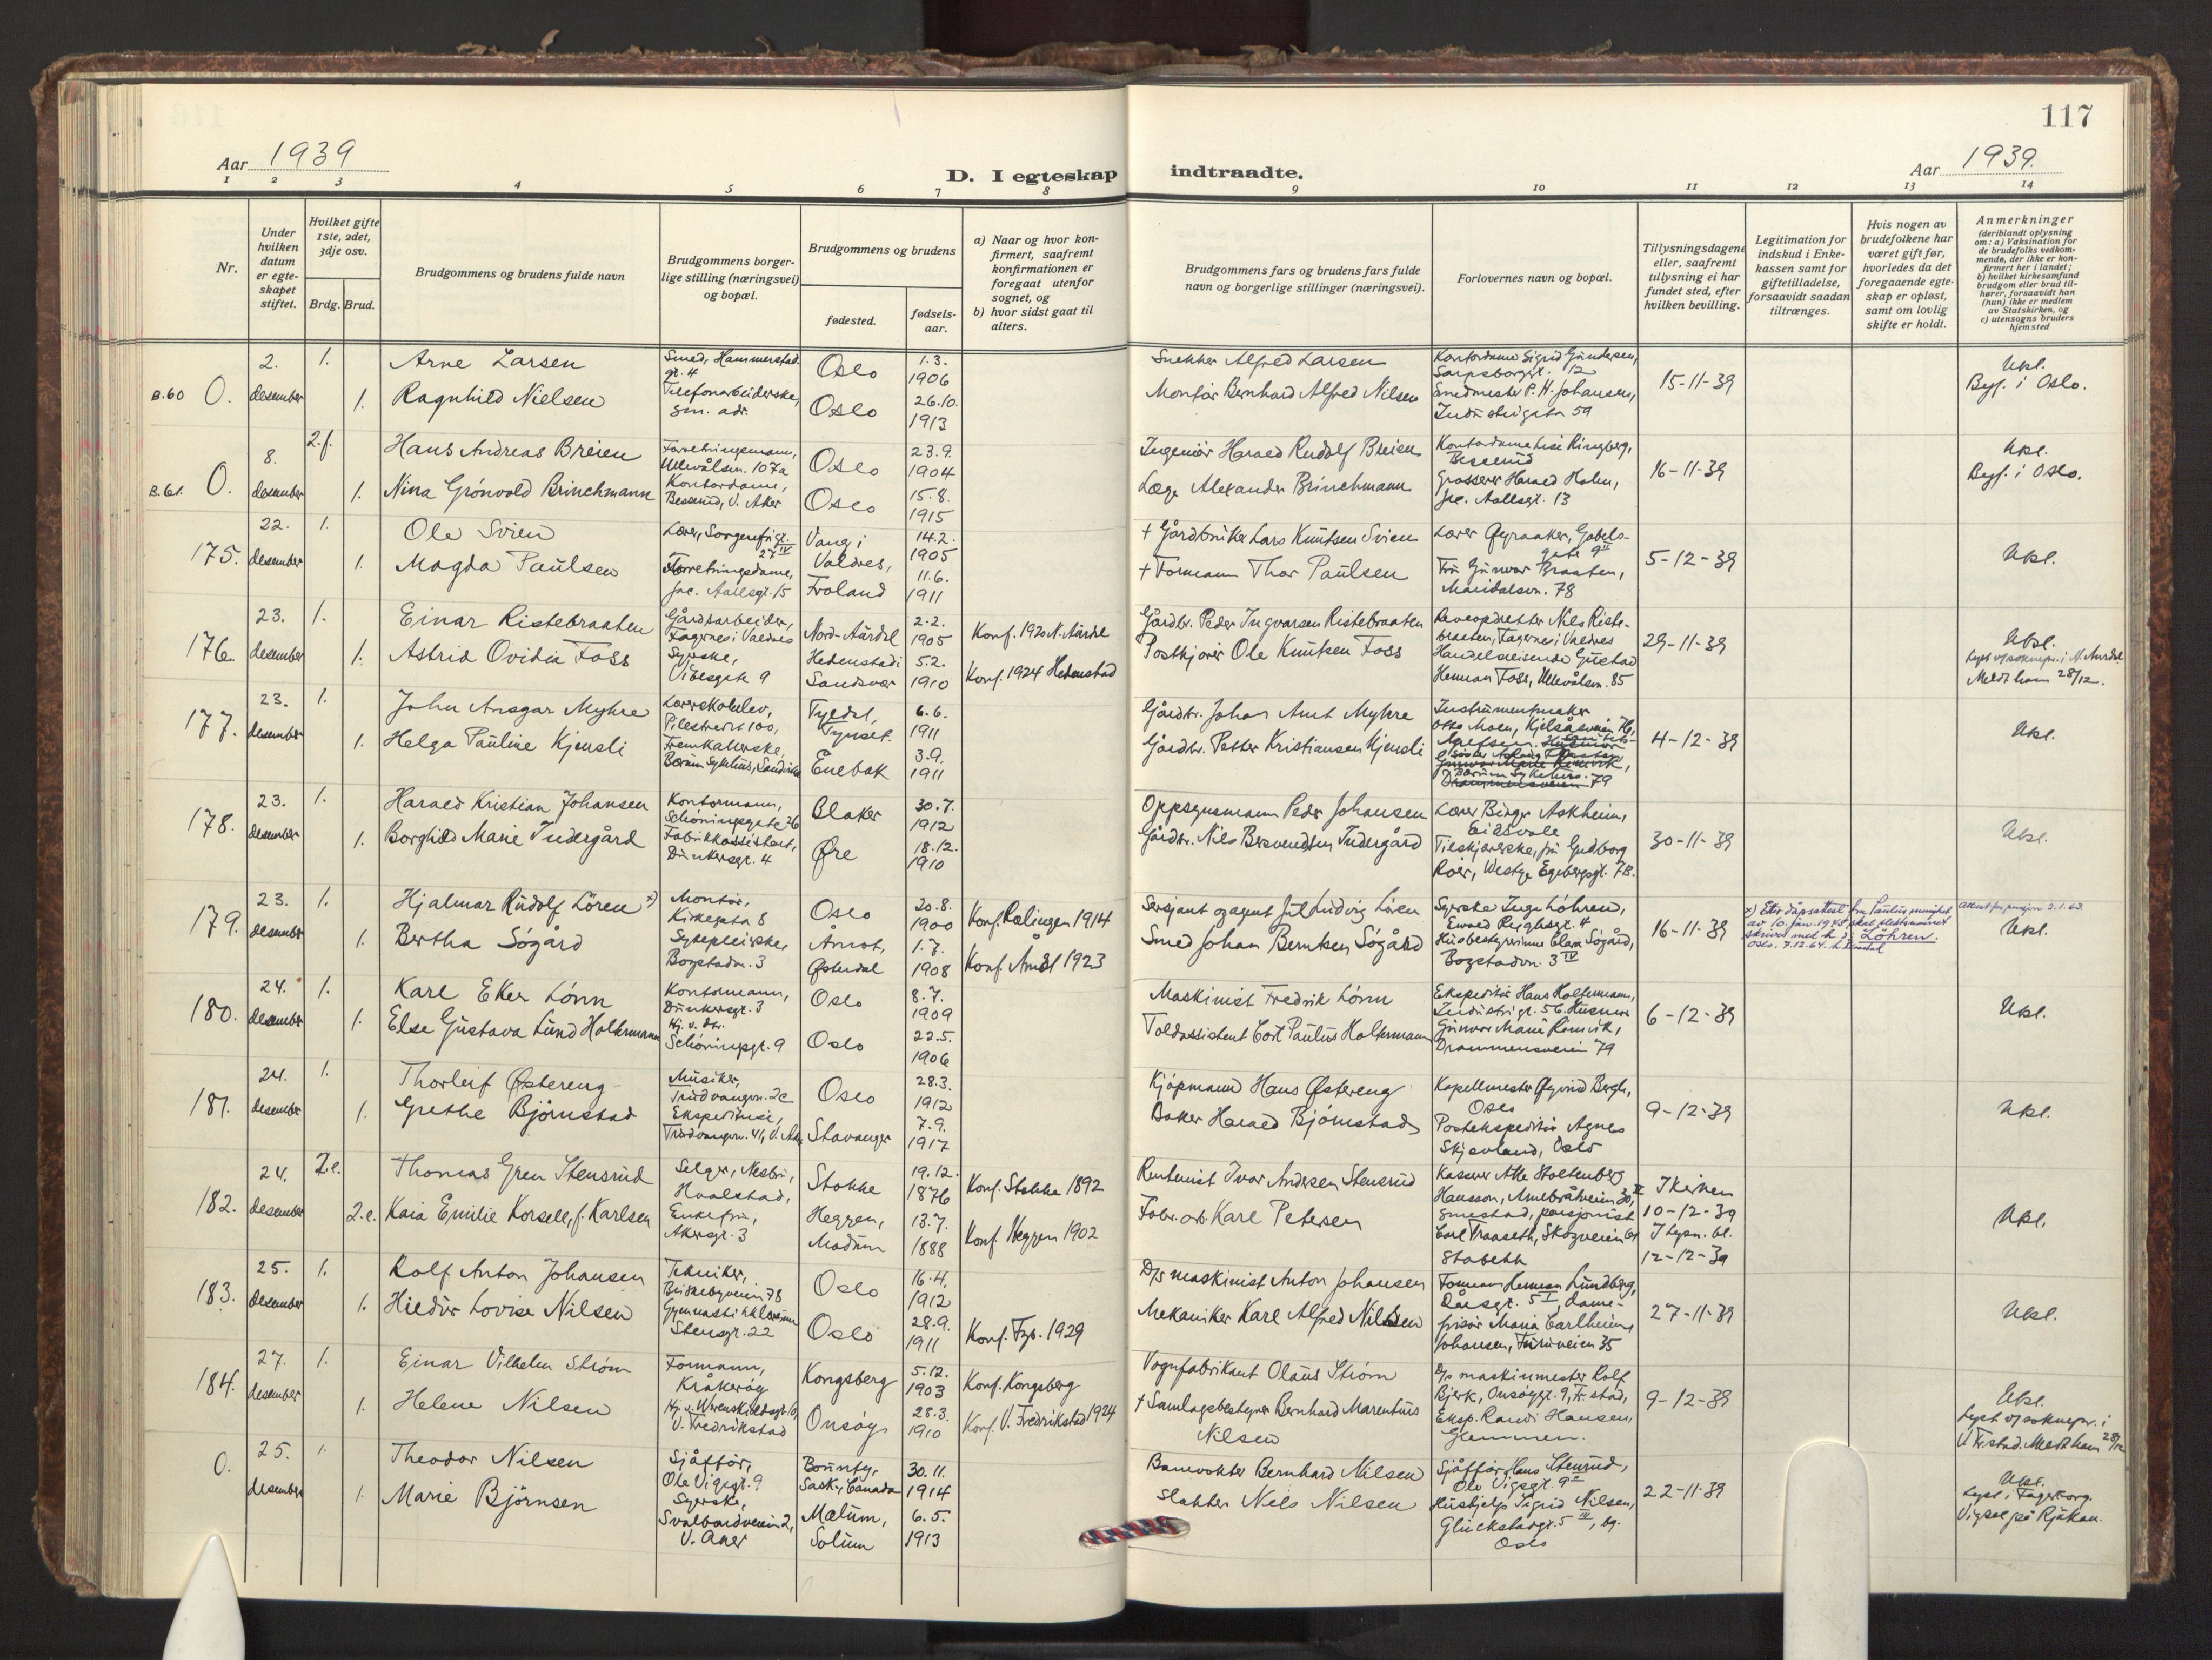 117
Aar 1939
D. I egteskap indtraadte.
Aar 1939.
1 2 3 4 5 6 7 8 9 10 11 12 13 14
Nr.
Under hvilken datum er egteskapet stiftet.
Hvilket gifte 1ste, 2det, 3dje osv.
Brdg. Brud.
Brudgommens og brudens fulde navn
Brudgommens borgerlige stilling (næringsvei) og bopæl.
Brudgommens og brudens
fødested.
fødselsaar.
a) Naar og hvor konfirmert, saafremt konfirmationen er foregaat utenfor sognet, og
b) hvor sidst gaat til alters.
Brudgommens fars og brudens fars fulde navn og borgerlige stillinger (næringsvei).
Forlovernes navn og bopæl.
Tillysningsdagene eller, saafremt tillysning ei har fundet sted, efter hvilken bevilling.
Legitimation for indskud i Enkekassen samt for giftetilladelse, forsaavidt saadan tiltrænges.
Hvis nogen av brudefolkene har været gift før, hvorledes da det foregaaende egteskap er opløst, samt om lovlig skifte er holdt.
Anmerkninger
(deriblandt oplysning om: a) Vaksination for de brudefolks vedkommende, der ikke er konfirmert her i landet; b) hvilket kirkesamfund brudgom eller brud tilhører, forsaavidt han (hun) ikke er medlem av Statskirken, og c) utensogns bruders hjemsted
B.60 O. 2. desember 1. Arne Larsen Smed, Hammerstadgt. 4 Oslo 1.3. 1906 Snekker Alfred Larsen Kontordame Sigrid Gundersen, Sarpsborggt. 12 15-11-39 Ukl. Byf. i Oslo.
1. Ragnhild Nielsen Telefonarbeiderske, sm. adr. Oslo 26.10. 1913 Montør Bernhard Alfred Nilsen Smedmester P. H. Johansen, Industrigata 59
B.61. O. 8. desember 2.f. Hans Andreas Breien Forretningsmann, Ullevålsvn. 107a Oslo 23.9. 1904 Ingeniør Harald Rudolf Breien Kontordame Lise Ringberg, Besserud 16-11-39 Ukl. Byf. i Oslo.
1. Nina Grönvold Brinchmann Kontordame, Besserud, V. Aker Oslo 15.8. 1915 Læge Alexander Brinchmann Grosserer Harald Holen, Jac. Aallsgt. 13
175. 22. desember 1. Ole Svien Lærer, Sorgenfrigt. 27 IV Vang i Valdres, 14.2. 1905 + Gårdbruker Lars Knutsen Svien Lærer Øyraaker, Gabelsgate 9 II 5-12-39 Ukl.
1. Magda Paulsen Forretningsdame, Jac. Aallsgt. 15 Froland 11.6. 1911 + Formann Thor Paulsen Fru Gunvor Braaten, Maridalsvn. 78
176. 23. desember 1. Einar Ristebraaten Gårdsarbeider, Fagernes i Valdres Nord-Aurdal 2.2. 1905 Konf. 1920 N. Aurdal Gårdbr. Peder Ingvarsen Ristebraaten Reveopdretter Nils Ristebraaten, Fagernes i Valdres 29-11-39 Ukl.
1. Astrid Ovidia Foss Syerske, Vibesgate 9 Hedenstad i Sandsvær 5.2. 1910 Konf. 1924 Hedenstad Postkjører Ole Knutsen Foss Handelsreisende Gustad Herman Foss, Ullevålsvn. 85 Lyst v/soknepr. i N. Aurdal Meldt ham 28/12.
177. 23. desember 1. John Ansgar Myhre Lærerskoleelev, Pilestredet 100, Tyldal, Tynset. 6.6. 1911 Gårdbr. Johan Amt Myhre Instrumentmaker Otto Moen, Kjelsåsveien 4-12-39 Ukl.
1. Helga Pauline Kjensli Fremkallerske, Bærum Sykehus, Sandvika Enebak 3.9. 1911 Gårdbr. Petter Kristiansen Kjensli Bærum Sykehus. 79
178. 23. desember 1. Harald Kristian Johansen Kontormann, Schøningsgate 36 Blaker 30.7. 1912 Oppsynsmann Peder Johansen Lærer Birger Askheim, Eidsvoll 30-11-39 Ukl.
1. Borghild Marie Indergård Fabrikkassistent, Dunkersgt. 4 Øre 18.12. 1910 Gårdbr. Nils Bersvendsen Indergård Tilskjærerske, fru Gudborg Roer, Westye Egebergsgt. 7B.
179. 23. desember 1. Hjalmar Rudolf Lören x) Montør, Kirkegata 8 Oslo 20.8. 1900 Konf. Rælingen 1914 Sersjant og agent Jul Ludvig Lören Syerske Inga Löhren, Edvard Reighsgt. 4 16-11-39 x) Etter dåpsattest fra Paulus menighet av 10 jan. 1945 skal slektsnavnet skrives med h i: Löhren. Oslo, 7.12.64. Attest for pensjon 2.1.63. Ukl.
1. Bertha Sögård Sykepleierske, Bogstadvn. 3 Åmot, Østerdal 1.7. 1908 Konf. Åmot 1923 Smed Johan Berntsen Sögård Husbestyrerinne Clara Sögård, Bogstadvn. 3 IV
180. 24. desember 1. Karl Eker Lönn Kontormann, Dunkersgt. 3 Oslo 8.7. 1909 Maskinist Fredrik Lönn Ekspeditør Hans Haltermann, Industrigt. 56. Husmor 6-12-39 Ukl.
1. Else Gustava Lund Holtermann Hj. v. dtr. Schøningsgt. 9 Oslo 22.5. 1906 Tollassistent Cort Paulus Holtermann Gunvor Marie Romvik, Drammensveien 79
181. 24. desember 1. Thorleif Østereng Musiker, Trudvangvn. 2c Oslo 28.3. 1912 Kjøpmann Hans Østereng Kapellmester Øyvind Bergh, Oslo 9-12-39 Ukl.
1. Grethe Björnstad Ekspeditrise, Trudvangvn. 41, V. Aker Stavanger 7.9. 1917 Baker Harald Björnstad Postekspeditör Agnes Skjævland, Oslo
182. 24. desember 2.e. Thomas Gren Stensrud Selger, Nesbru, Hvalstad, Stokke 19.12. 1876 Konf. Stokke 1892 Rentenist Ivar Andersen Stensrud Kaserer Atle Stoltenberg Hansson, Arnebråtveien 30, II Smestad, pensjonist I kirken 10-12-39 Ukl.
2.e. Kaia Emilie Korsell, f. Karlsen Enkefru, Akersgt. 3 Heggen, Modum 13.7. 1888 Konf. Heggen 1902 Fabr. arb. Karl Petersen Carl Traaseth, Skogveien Stabekk I lysn. bl. 12-12-39
183. 25. desember 1. Rolf Anton Johansen Tekniker, Briskebyveien 78 Oslo 16.4. 1912 D/s maskinist Anton Johansen Formann Herman Lundberg, Daasgt. 5 I, dame- 27-11-39 Ukl.
1. Hildur Lovise Nilsen Gymnastikklærerinne Stensgt. 22 Oslo 28.9. 1911 Konf. Fgb. 1929 Mekaniker Karl Alfred Nilsen frisør Maria Carlheim Johansen, Furuveien 35
184. 27. desember 1. Einar Vilhelm Strøm Formann, Kråkerøy Kongsberg 5.12. 1903 Konf. Kongsberg Vognfabrikant Olaus Strøm D/s maskinmester Rolf Bjerk, Onsøygt. 9, Fr.stad, 9-12-39 Ukl.
1. Helene Nilsen Hj. v. Werenskioldsgt. V. Fredrikstad Onsøy 28.3. 1910 Konf. V. Fredrikstad 1924 + Samlagsbestyrer Bernhard Marentius Nilsen Eksp. Randi Hansen, Glemmen. Lyst v/soknepr. i V. Fr.stad. Meldt ham 28/12
O. 25. desember 1. Theodor Nilsen Sjåffør, Ole Vigsgt. 9 Bounty, Sask., Canada 30.11. 1914 Banevokter Bernhard Nilsen Sjåffør Hans Stensrud, Ole Vigsgt. 9 II 22-11-39 Ukl. Lyst i Fagerborg. Vigsel på Rjukan.
1. Marie Björnsen Syerske, Svalbardveien 2, V. Aker Mælum, Solum 6.5. 1913 Slakter Nils Nilsen Hushjelp Sigrid Nilsen, Glückstadgt. 5 IV, bg. Oslo